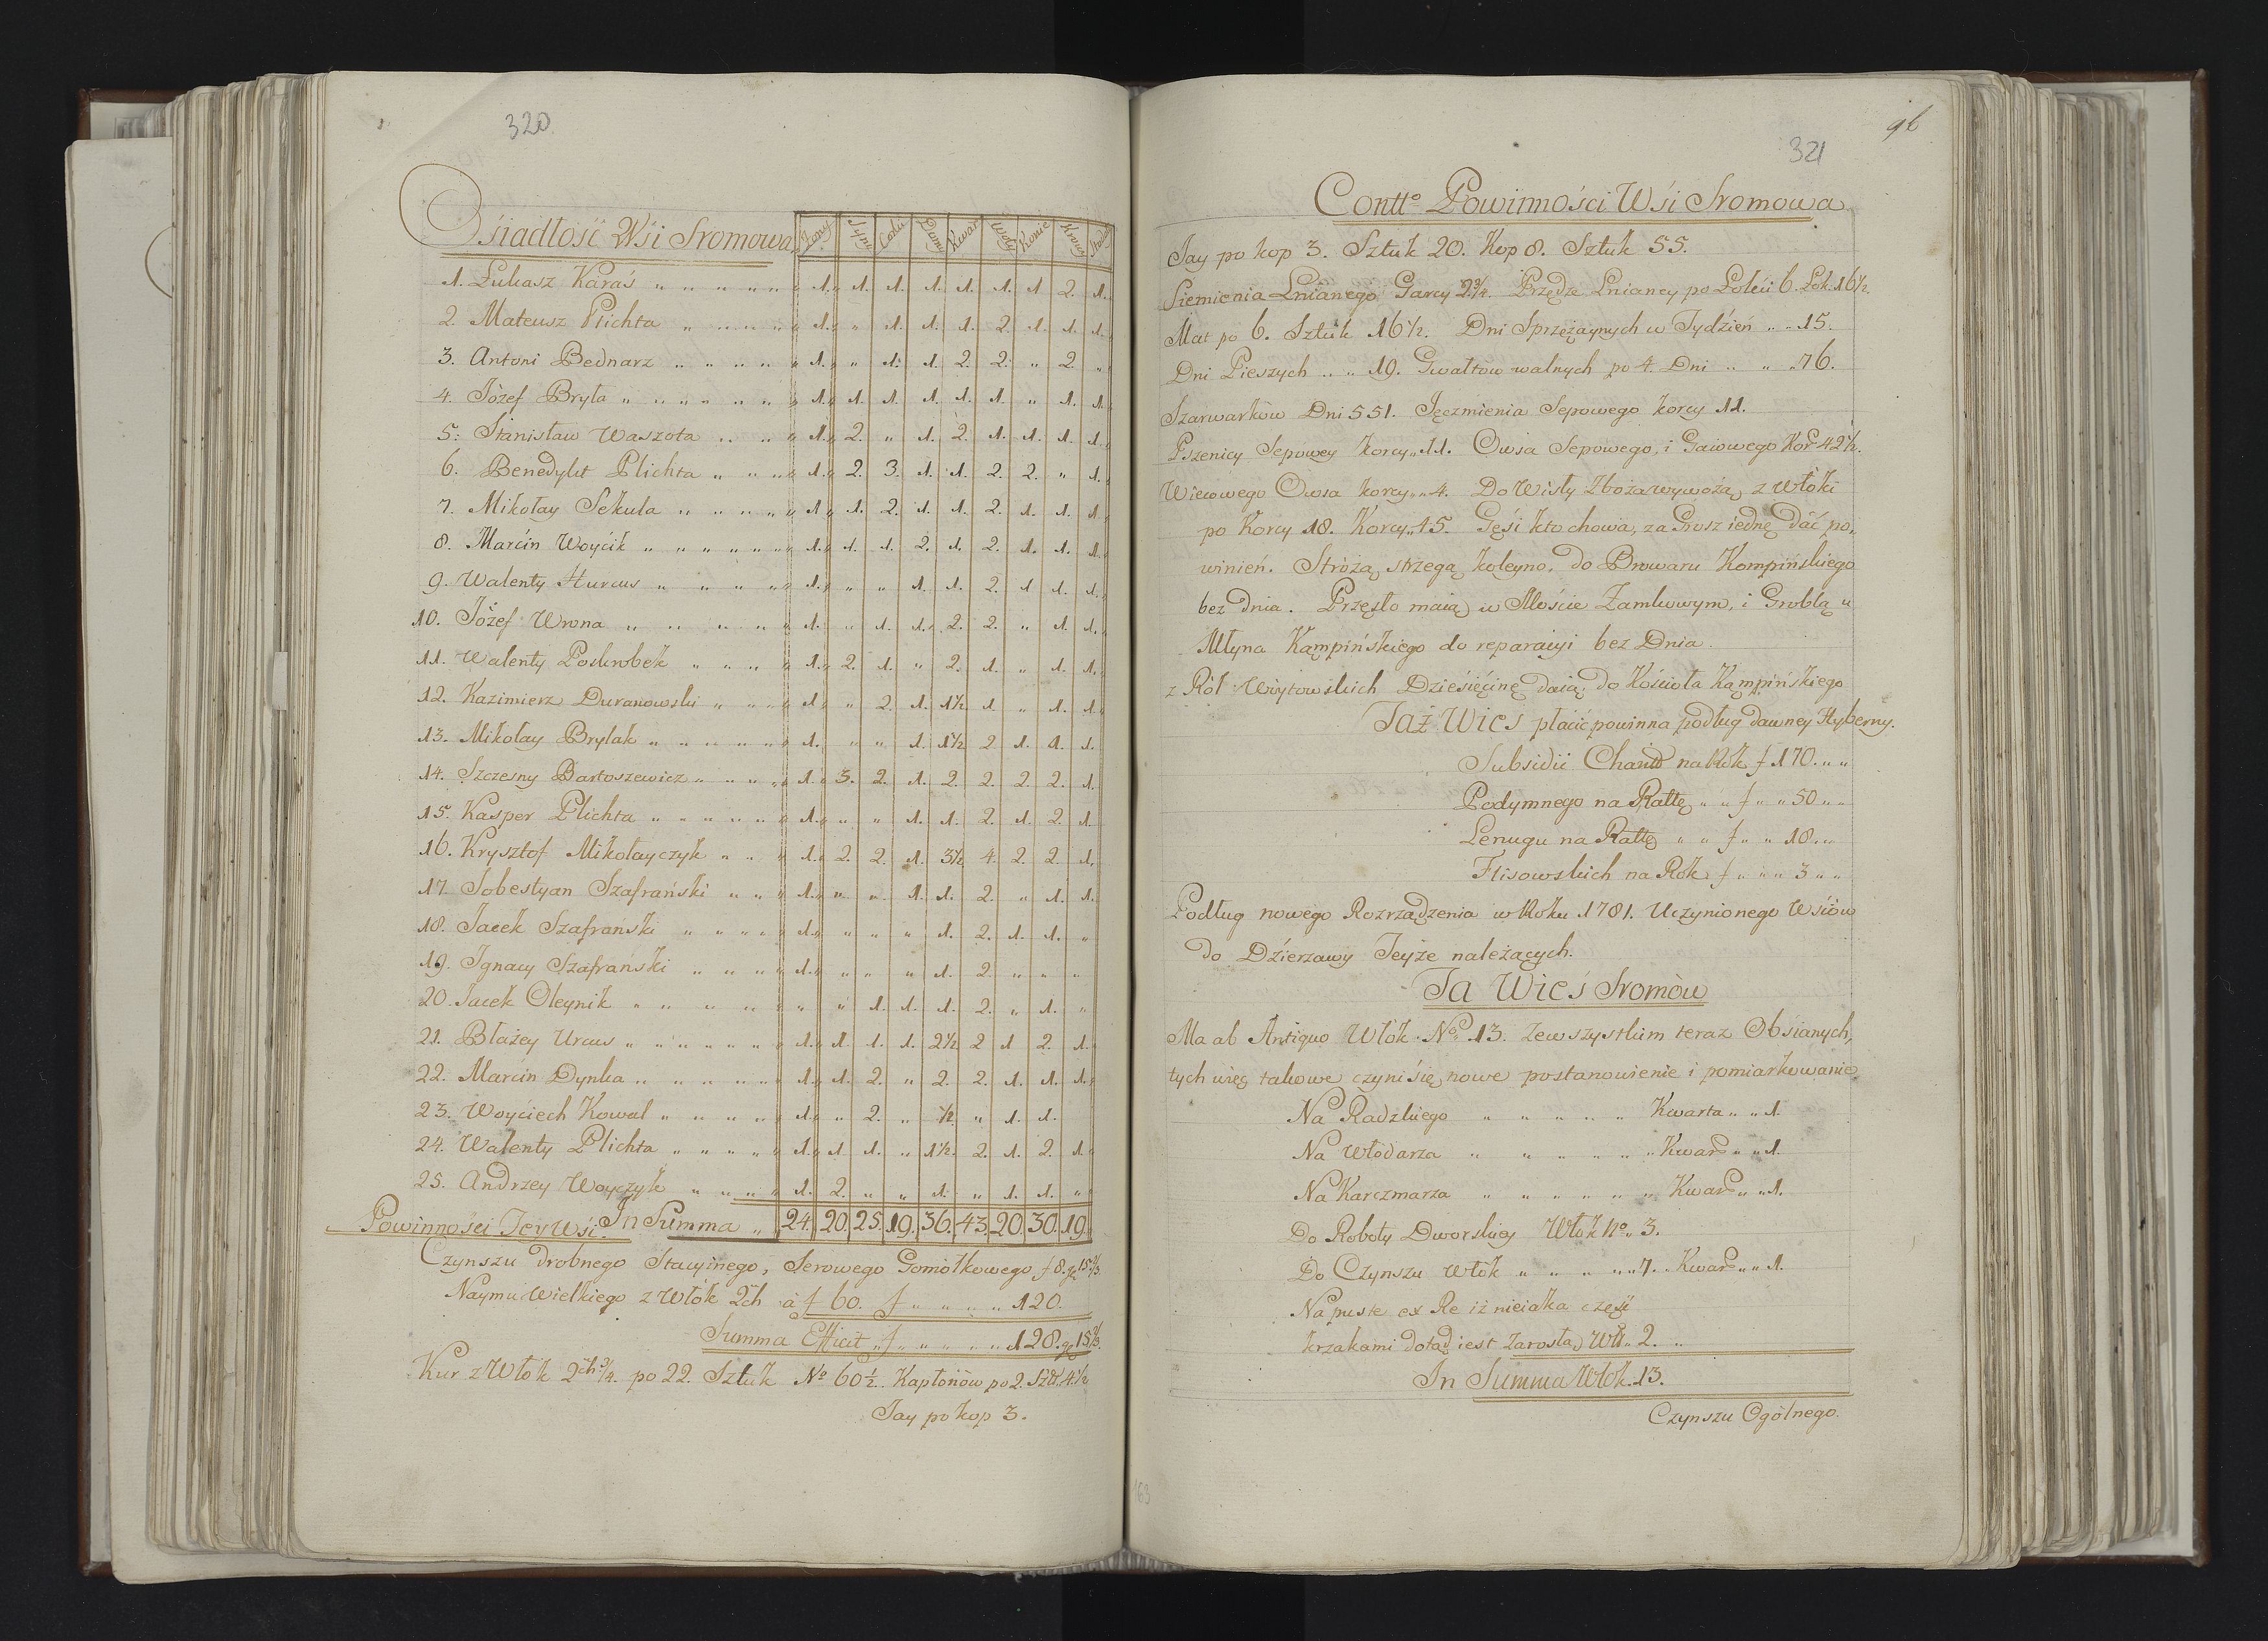 320
Osiadłość Wsi Sromowa Żony Synowie Córki Domy Kwar Woły Konie Krowy Stodoły
1. Łukasz Karaś „ „ „ „ „ „ 1. 1. 1. 1. 1. 1. 1 2. 1.
2. Mateusz Plichta „ „ „ „ „ 1. „ 1. 1. 1. 2. 1. 1. 1.
3. Antoni Bednarz „ „ „ „ „ 1. „ 1. 1. 2. 2. „ 2. „
4. Józef Bryła „ „ „ „ „ „ 1. 1. 1. 1. 1. 1. „ 1. 1.
5. Stanisław Waszota „ „ „ 1. 2. „ 1. 2. 1. 1. 1. 1.
6. Benedykt Plichta „ „ „ „ 1. 2. 3. 1. 1. 2. 2. „ 1.
7. Mikołay Sekuła „ „ „ „ „ 1 1. 2. 1. 1. 2. 1. 1. 1.
8. Marcin Woycik „ „ „ „ „ „ 1. 1. 1. 2. 1. 2. 1. 1. 1.
9. Walenty Hurcus „ „ „ „ „ 1. „ „ 1. 1. 2. 1 1. 1.
10. Józef Wrona „ „ „ „ „ 1. „ 1. 1. 2. 2. „ 1. 1.
11. Walenty Poskrobek „ „ „ „ 1. 2. 1. „ 2. 1. „ 1. 1.
12. Kazimierz Duranowski „ „ „ 1. „ 2. 1. 1½ 1 „ 1. 1.
13. Mikołay Brylak „ „ „ „ „ 1. „ „ 1. 1½ 2 1. 1. 1.
14. Szczesny Bartoszewicz „ „ „ 1. 3. 2. 1. 2. 2. 2. 2. 1.
15. Kasper Plichta „ „ „ „ „ 1. „ „ 1. 1. 2. 1. 2. 1.
16. Krysztof Mikołayczyk „ „ „ 1. 2. 2. 1. 3½ 4. 2. 2. 1.
17 Sobestyan Szafrański „ „ „ 1. „ „ 1. 1. 2. „ 1. 1.
18. Jacek Szafrański „ „ „ „ 1. „ „ „ 1. 2. 1. 1. „
19. Ignacy Szafrański „ „ „ „ 1. „ „ „ 1. 2. „ „ „
20. Jacek Oleynik „ „ „ „ „ „ „ 1. 1. 1. 2. „ 1. „
21. Błażey Urcus „ „ „ „ „ „ 1. 1. 1. 1. 2½ 2 1 2. 1.
22. Marcin Dynka „ „ „ „ „ 1. 1. 2. „ 2. 2. 1. 1. 1.
23. Woyciech Kowal „ „ „ „ 1. „ 2. „ ½ „ 1. 1.
24. Walenty Plichta „ „ „ „ „ 1. 1 1. „ 1½. 2. 1. 2. 1.
25. Andrzey Woyczyk „ „ „ „ 1. 2. „ „ 1. „ 1. 1. „
Powinności Tey Wsi. In Summa „ 24. 20. 25. 19. 36. 43. 20. 30. 19.
Czynszu drobnego Stacyinego, Serowego Gomółkowego f 8. gr 15⅔.
Naymu Wielkiego z Włók 2ch á f 60. f „ „ „ „ 120.
Summa Efficit „ f „ „ „ „ „ 128. gr 15⅔.
Kur z Włók 2ch ¾. po 22. Sztuk No 60½. Kapłonów po 2. Szt. 4½
Jay po kop 3.
96
321
Contto Powinności Wsi Sromowa
Jay po kop 3. Sztuk 20. Kop 8. Sztuk 55.
Siemienia Lnianego Garcy 2¾. Przędze Lnianey po Łokci 6. Łok. 16½.
Mat po 6. Sztuk 16½. Dni Sprzężaynych w Tydzień „ „ 15.
Dni Pieszych „ „ 19. Gwałtow walnych po 4. Dni „ „ „ 76.
Szarwarków Dni 551. Jęczmienia Sepowego korcy 11.
Pszenicy Sepowey korcy „ 11. Owsa Sepowego, i Gaiowego Kor. 42½.
Wiecowego Owsa korcy „ „ 4. Do Wisły Zboża wywożą z Włóki
po Korcy 18. Korcy „ 45. Gęsi kto chowa, za Grosz iednę dać po,
winień. Stróżą strzegą koleyno, do Browaru Kompińskiego
bez dnia. Przęsło maią w Moście Zamkowym, i Groblą u
Młyna Kąmpińskiego do reparacyi bez Dnia.
z Ról Wóytowskich Dziesięcinę daią do Kościoła Kąmpińskiego
Taż Wies płacić powinna podług dawney Hyberny.
Subsidii Charit na Rok f 170. „ „
Podymnego na Rattę „ „ f „ „ 50 „ „
Lenugu na Rattę „ „ f „ „ 18. „ „
Flisowskich na Rok f „ „ „ 3 „ „
Podług nowego Rozrządzenia w Roku 1781. Uczynionego Wsiów
do Dzierzawy Teyże należących.
Ta Wieś Sromów
Ma ab Antiquo Włók No 13. zewszystkim teraz Obsianych,
tych więc takowe czyni się nowe postanowienie i pomiarkowanie
Na Radzkiego „ „ „ „ „ Kwarta „ „ 1.
Na Włodarza „ „ „ „ „ „ Kwar „ „ 1.
Na Karczmarza „ „ „ „ „ „ Kwar „ „ 1.
Do Roboty Dworskiey Włók No „ 3.
Do Czynszu Włók „ „ „ „ „ 7. „ Kwar „ „ 1.
Na puste ex Re iż nieiaka część
krzakami dotąd iest Zarosłą Wł. „ 2. „
In Summa Włók. 13.
Czynszu Ogólnego.